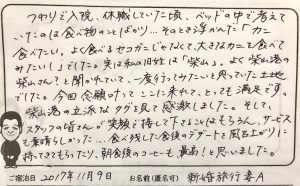 つわりで入院、休職していた頃、ベッドの中で考えて
いたのは食べ物のことばかり…そのとき浮かんだ「カニ
食べたい。よく食べるセコガニじゃなくて、大きなカニを食べて
みたい!」でした。実は私の旧姓は「柴山」。よく柴山港の
柴山さん?と聞かれていて、一度行ってみたいと思っていた土地
でした。今回念願叶ってここに来れて、とても満足です。
柴山港の立派なタグを見て感激しました。そして、
スタッフの皆さんが笑顔で接して下さることはもちろん、サービス
も素晴らしかった…食べ残した食後のデザートを風呂上がりに
持ってきてもらったり、朝食後のコーヒーも、最高!と思いました。
ご宿泊日 2017年11月9日 お名前(匿名可) 新婚旅行妻A